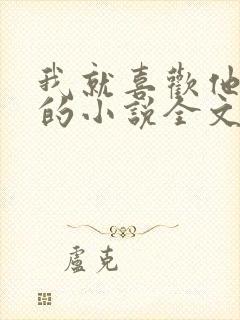 我就喜歡他
的小說全文
盧克